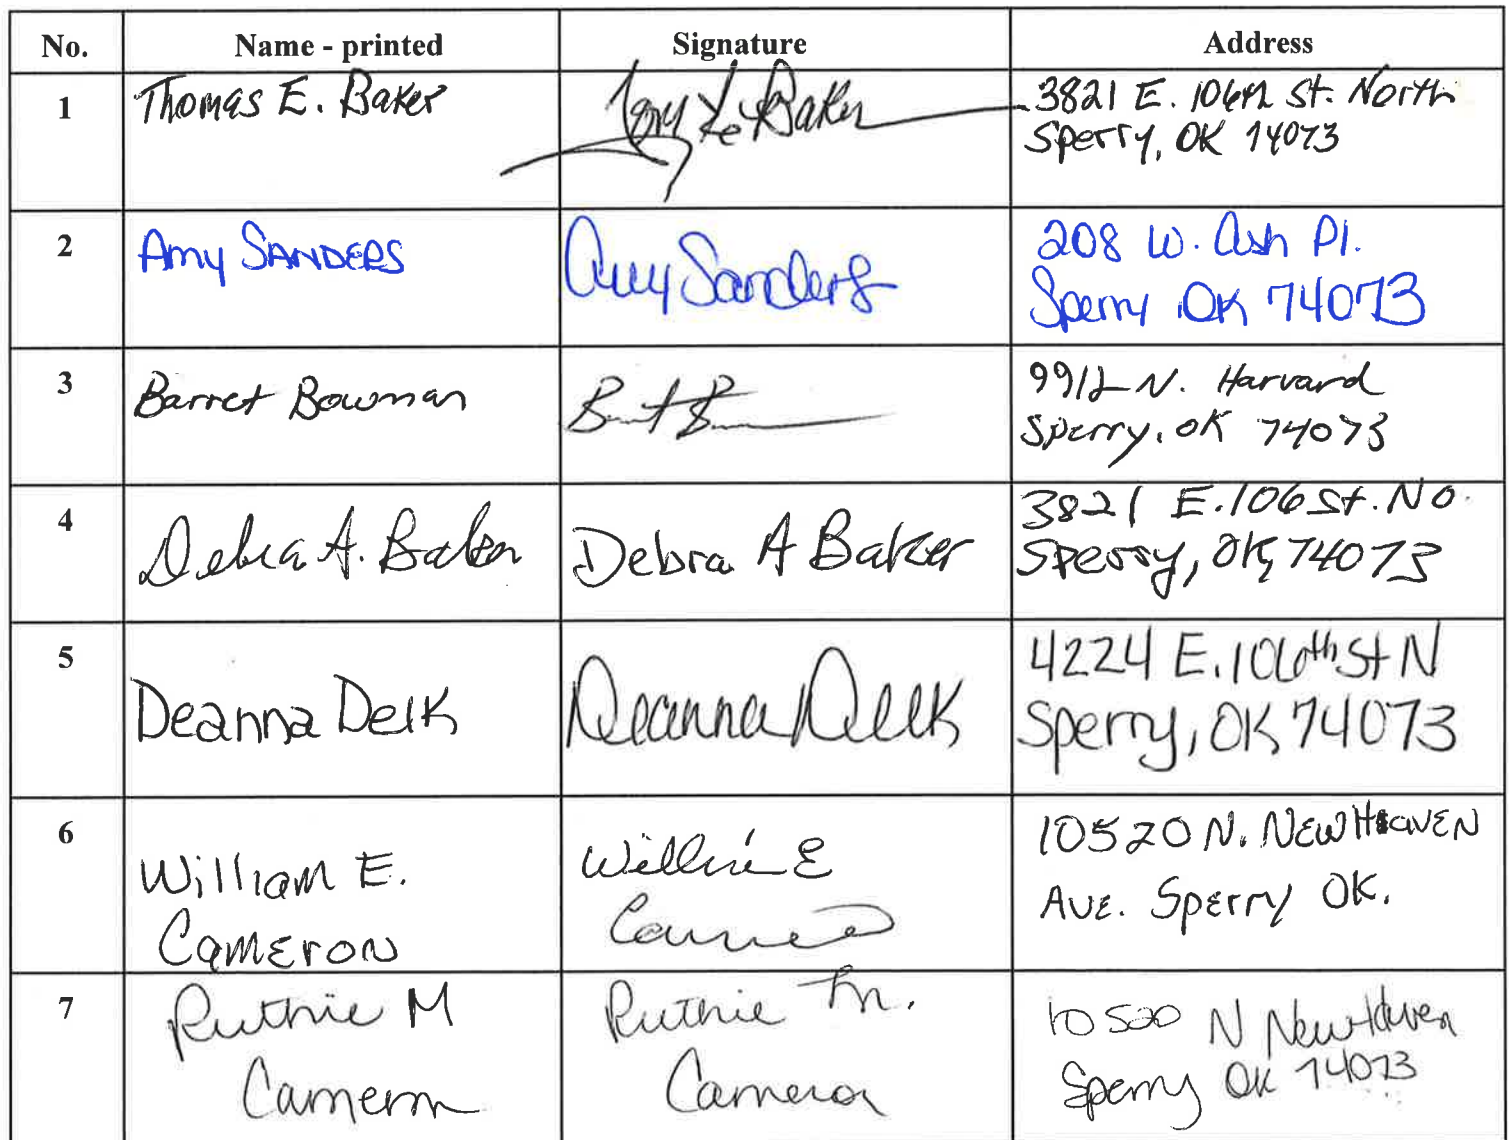 No. Name - printed Signature Address
1 Thomas E. Baker Baker 3821 E. 106th St. North
Sperry, OK 74073
2 Amy SANDERS Amy Sanders 208 W. Ash Pl.
Sperry OK 74073
3 Barret Bowman 9912 N. Harvard
Sperry, OK 74073
4 Debra A. Baker Debra A Baker 3821 E. 106 St. No.
Sperry, OK, 74073
5 Deanna Delk Deanna Delk 4224 E. 106th St N
Sperry, OK 74073
6 William E. E 10520 N. NEWHAVEN
CAMERON AVE. Sperry OK.
7 Ruthie M Ruthie M. 10520 N NewHaven
Cameron Cameron Sperry OK 74073